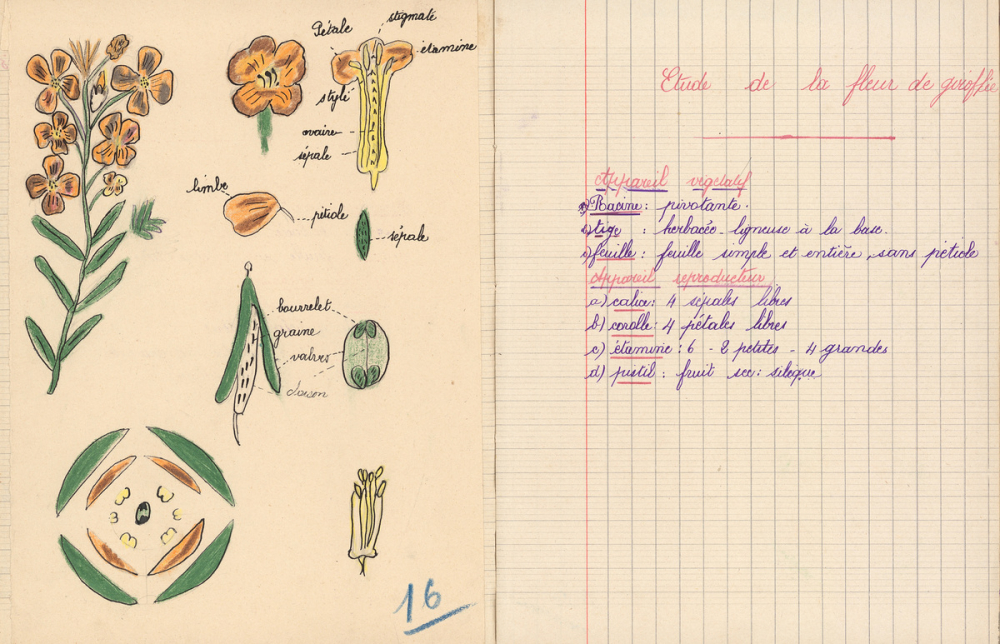 Pétale
stigmate
étamine
style
ovaire
sépale
limbe
pétiole
sépale
bourrelet
graine
valves
cloison
16
Etude de la fleur de giroflée
Appareil végétatif
a) Racine : pivotante.
b) tige : herbacée - ligneuse à la base.
c) feuille : feuille simple et entière, sans pétiole
Appareil reproducteur
a) calice : 4 sépales libres
b) corolle : 4 pétales libres
c) étamine : 6 - 2 petites - 4 grandes
d) pistil : fruit sec : silique